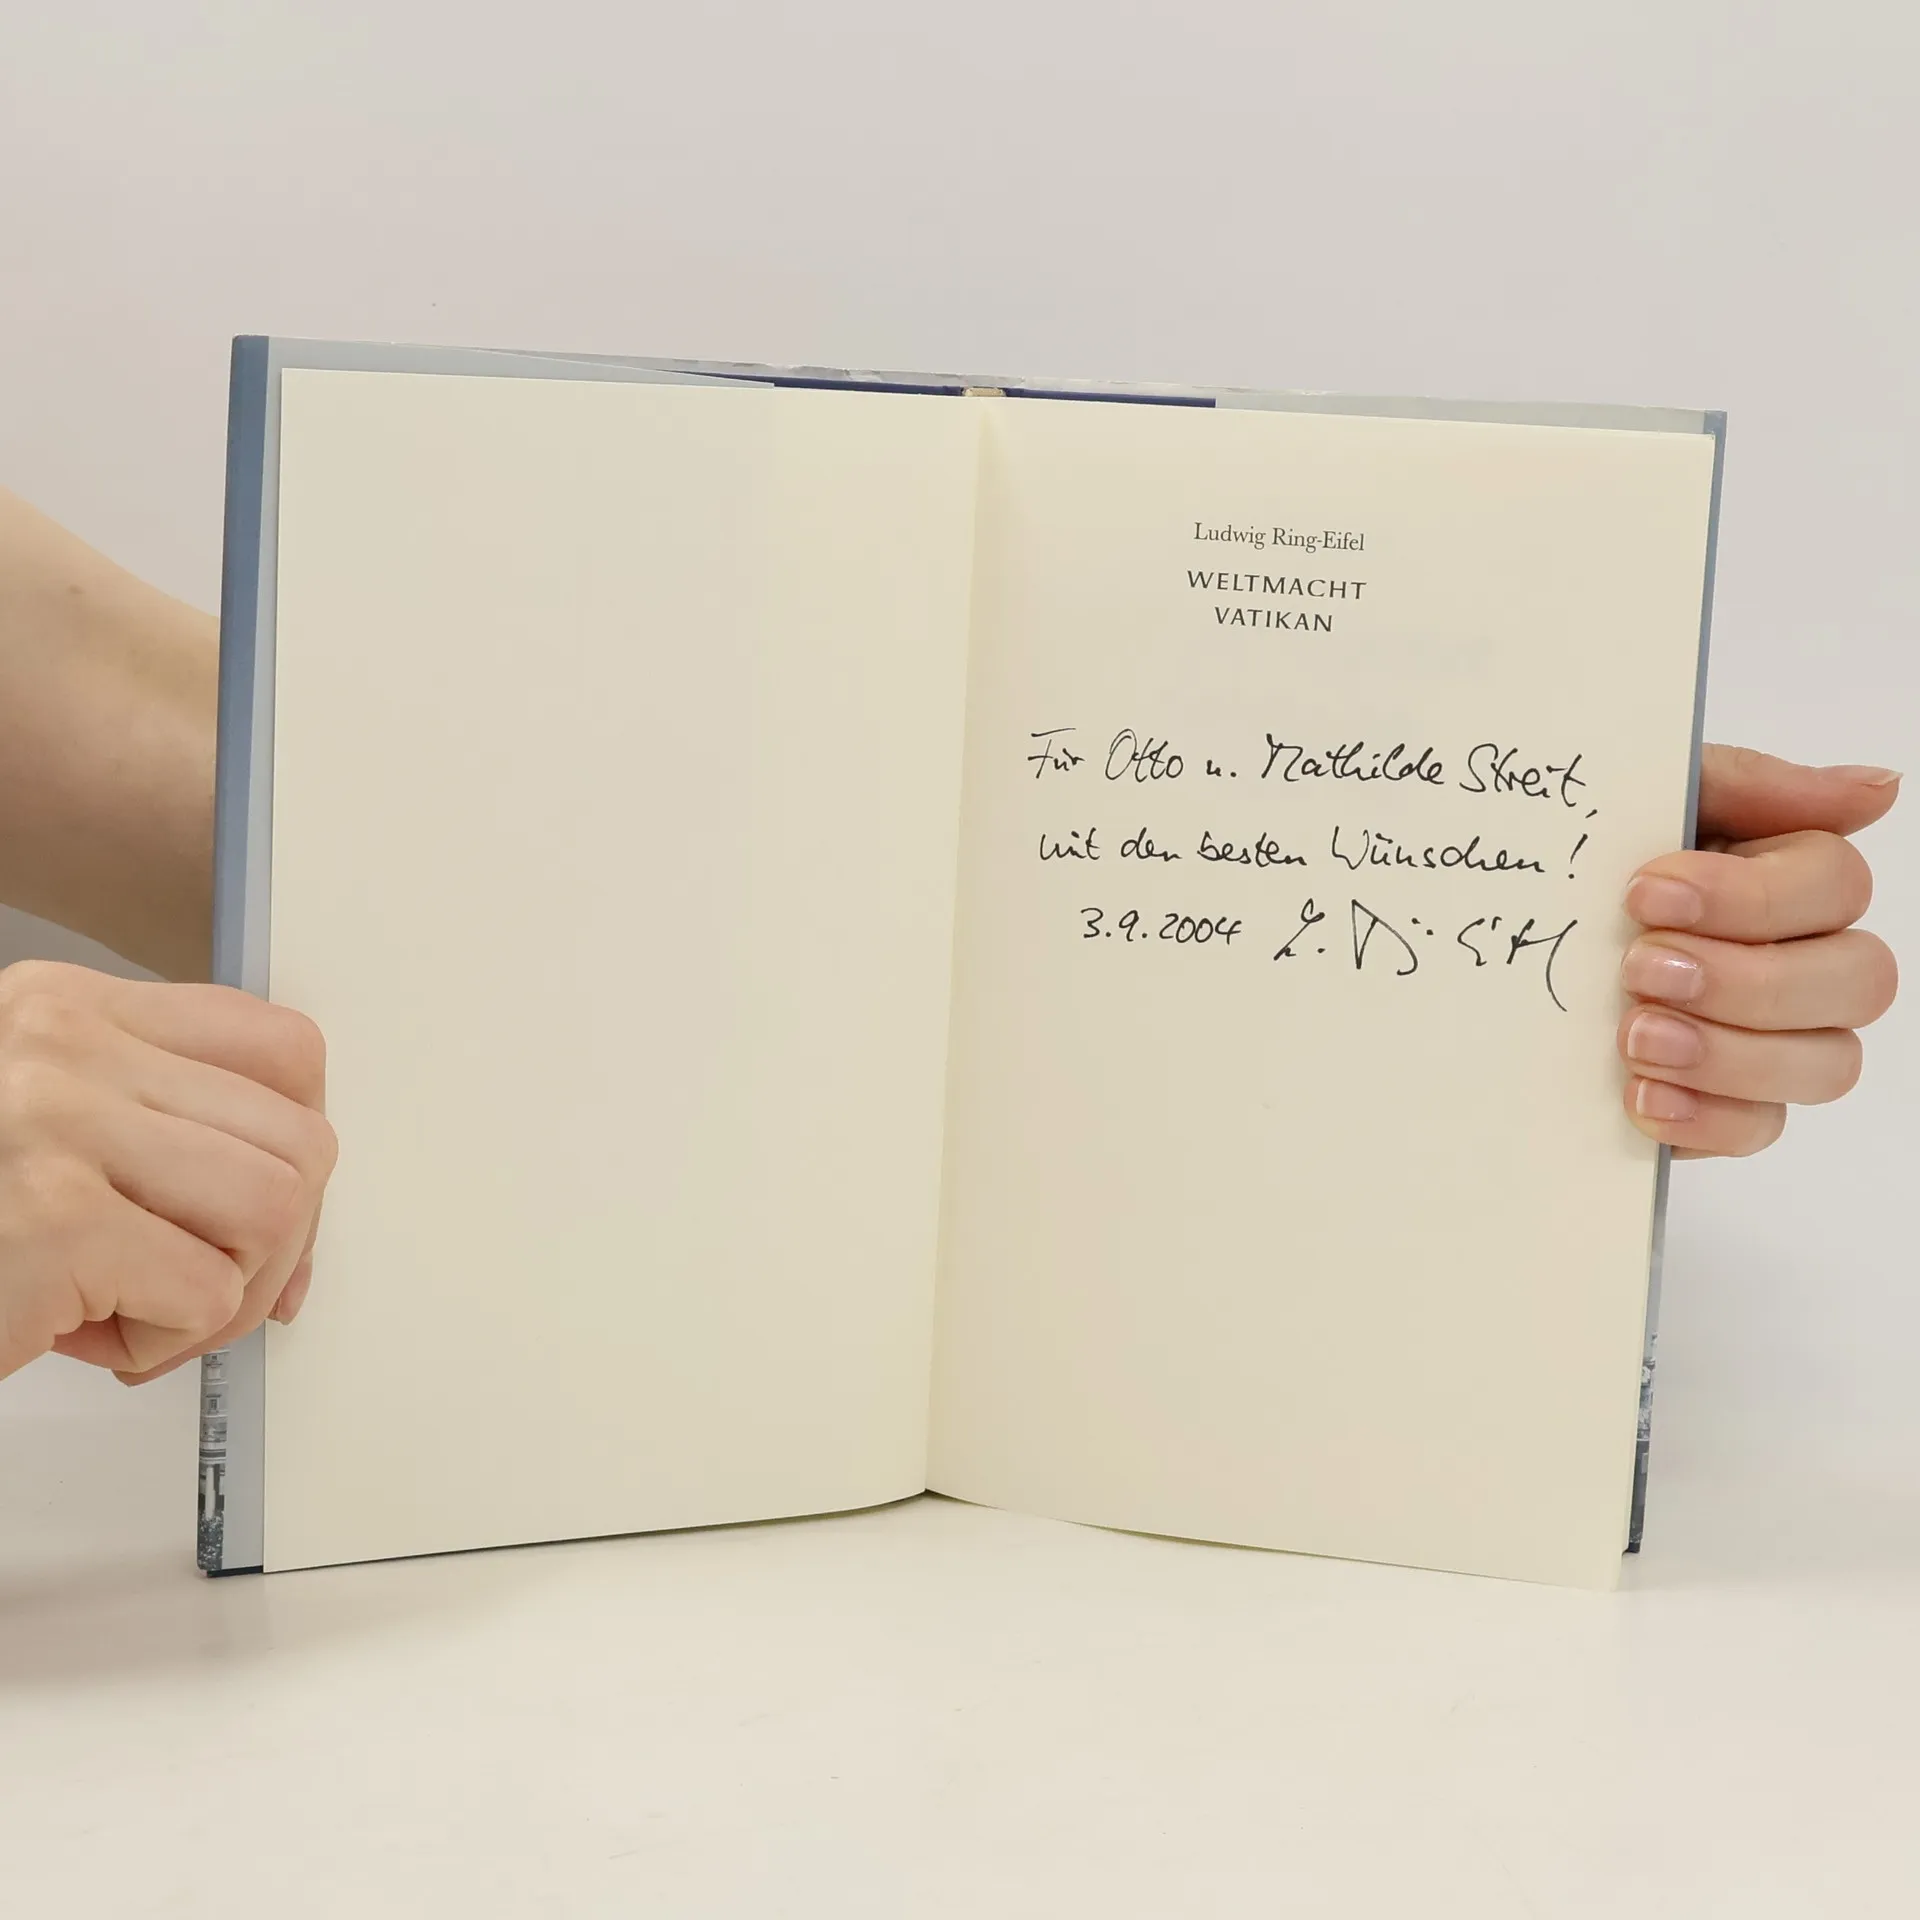 Ludwig Ring-Eifel
WELTMACHT
VATIKAN
Für Otto u. Mathilde Streit,
mit den besten Wünschen!
3.9.2004 L. Ring-Eifel